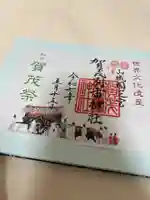 世界文化遺産
山城國一宮
賀茂別雷神社
令和
五月十五日
賀茂祭